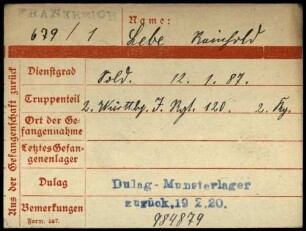 FRANKREICH
Name:
679/1 Lebe Reinhold
Aus der Gefangenschaft zurück
Dienstgrad Sold. 12.1.87.
Truppenteil 2. Württbg. J. Rgt. 120. 2. Kp.
Ort der Ge-
fangennahme
Letztes Gefan-
genenlager
Dulag Dulag-Munsterlager
zurück, 19 2.20.
Bemerkungen 984879
Form. 587.